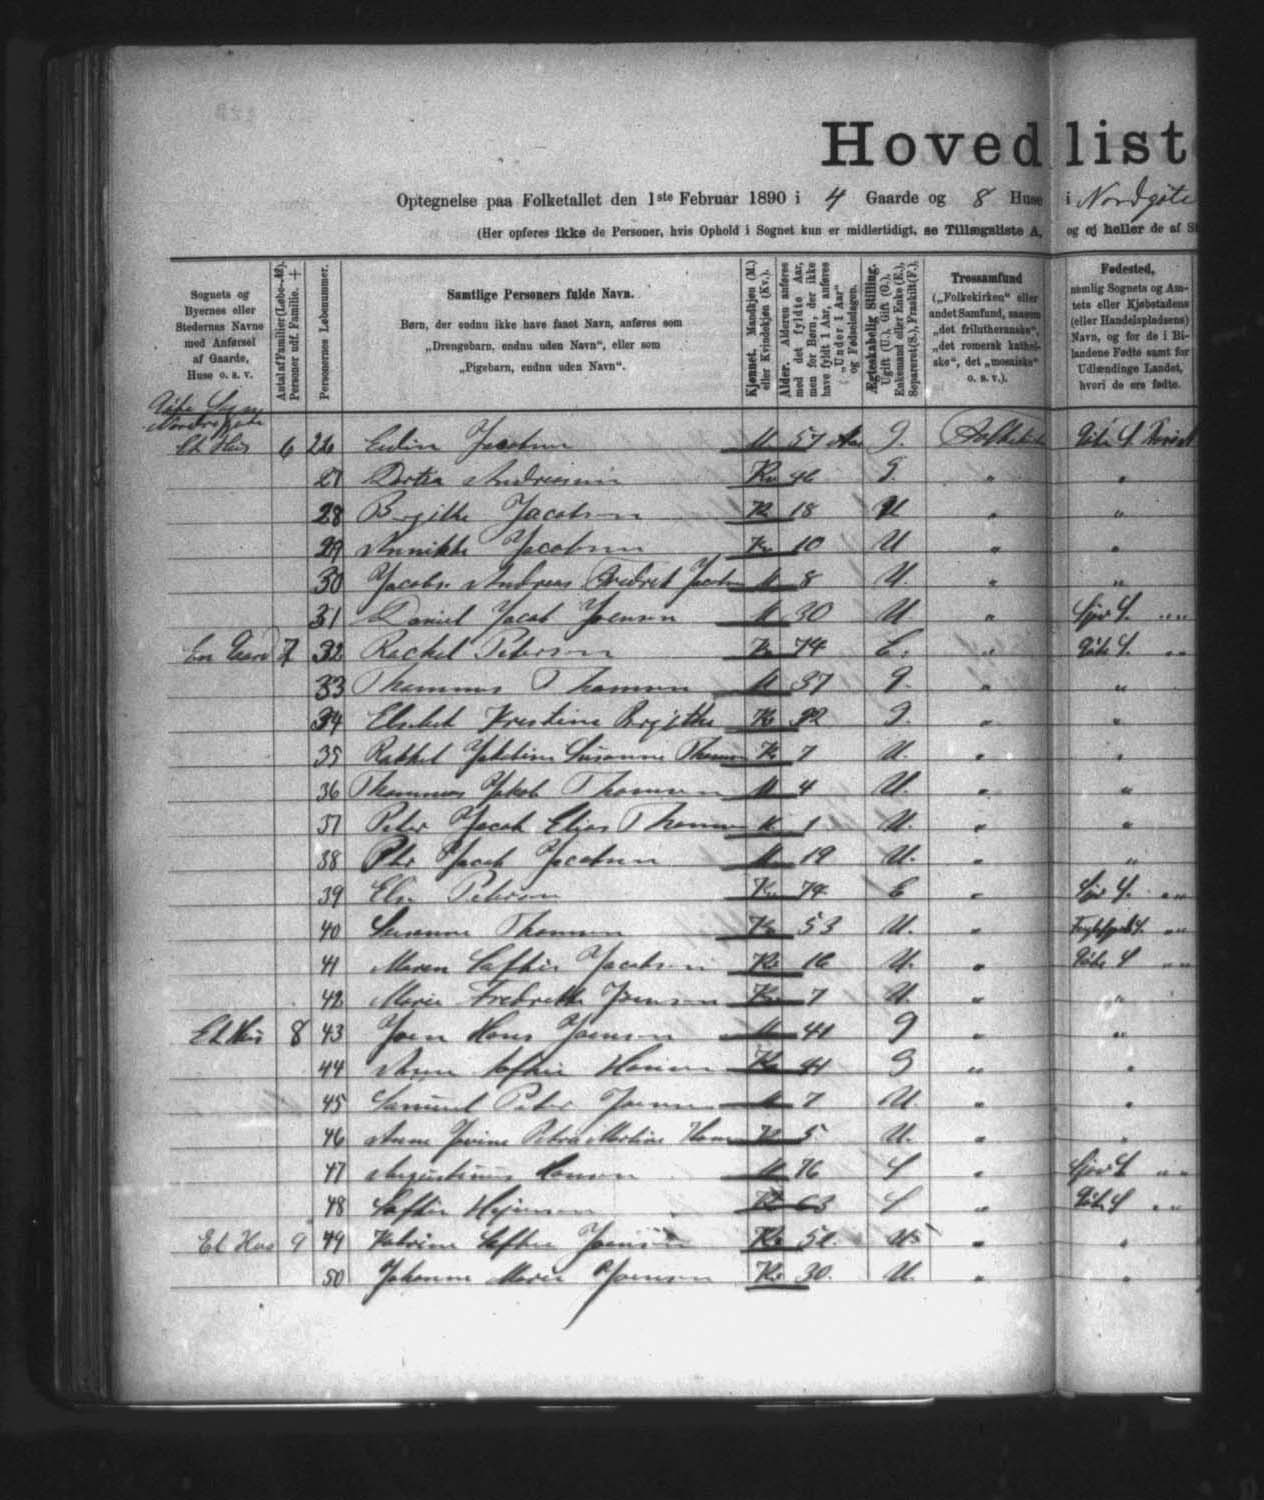 Hovedlist
Optegnelse paa Folketallet den 1ste Februar 1890 i 4 Gaarde og 8 Huse i Nordgøte
(Her opføres ikke de Personer, hvis Ophold i Sognet kun er midlertidigt, se Tillægsliste A, og ej heller de af
Sognets og Byernes eller Stedernes Navne med Anførsel af Gaarde, Huse o. s. v.
Antal af Familier (Løbe-№). Personer udf. Familie. +
Personernes Løbenummer.
Samtlige Personers fulde Navn.
Børn, der endnu ikke have faaet Navn, anføres som
„Drengebarn, endnu uden Navn“, eller som
„Pigebarn, endnu uden Navn“.
Kjønnet. Mandkjøn (M.) eller Kvindekjøn (Kv.).
Alder. Alderen anføres med det fyldte Aar, men for Børn, der ikke have fyldt 1 Aar, anføres „Under 1 Aar“ og Fødselsdagen.
Ægteskabelig Stilling. Ugift (U.), Gift (G.), Enkemand eller Enke (E.), Separeret (S.), Fraskilt (F.).
Trossamfund
(„Folkekirken“ eller andet Samfund, saasom „det frilutheranske“, „det romersk katholske“, det „mosaiske“ o. s. v.).
Fødested,
nemlig Sognets og Amtets eller Kjøbstadens (eller Handelspladsens) Navn, og for de i Bilandene Fødte samt for Udlændinge Landet, hvori de ere fødte.
Gøte Sogn
Nordregøte
Et Hus 6 26 Jacobsen M 57 Aar G. Folkekirk Gøte S.
27 Andreasen Kv 46 G. "
28 Birgitte Jacobsen K 18 U "
29 Annikke Jacobsen Kv 10 U "
30 Jacob Andreas Fredrik Jacobsen M 8 U. "
31 Daniel Jacob Joensen M 30 U. " S. " "
En Gaard 7 32 Rachel Petersen Kv 74 E. " Gøte S. " "
33 Thommas Thomsen M 37 G. " "
34 Elsebet Kristine Birgithe K 32 G. " "
35 Rakkel Jakobine Susanne Thomsen K 7 U. " "
36 Thommas Jakob Thomsen M 4 U. " "
37 Peter Jacob Elias Thomsen M 1 U. " "
38 Jacob Jacobsen M 19 U. " "
39 Petersen Kv 74 E " S. " "
40 Susanne Thomsen Kv 53 U. " S. " "
41 Maren Jacobsen Kv 16 U. " Gøte S " "
42 Marie Fredrikke Joensen Kv 7 U. " "
Et Hus 8 43 Joen Hans Joensen M 41 G " "
44 Anne Hansen Kv 41 G " "
45 Samuel Peter Joensen M 7 U. " "
46 Anne Petra K 5 U. " "
47 Hansen M 76 " S " "
48 K 63 " Gøte S " "
Et Hus 9 49 Joensen Kv 50. U " "
50 Johanne Marie Joensen Kv 30. U. " "